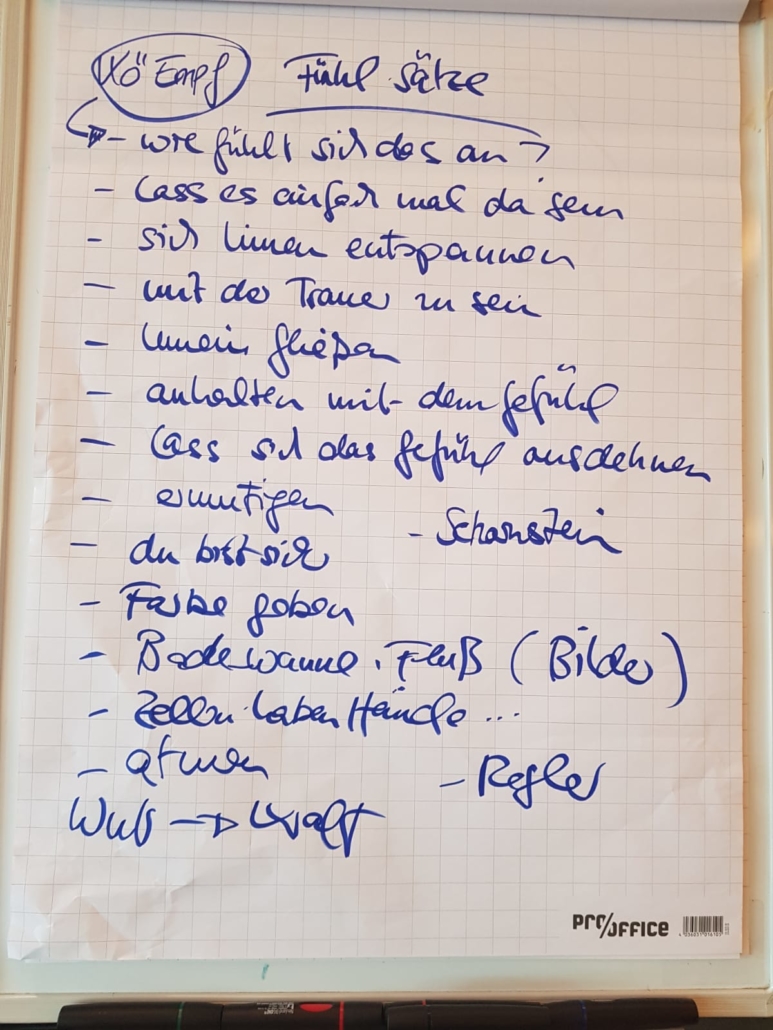 Kö Empf Fühl Sätze
- wie fühlt sich das an?
- Lass es einfach mal da sein
- sich hinein entspannen
- mit der Trauer zu sein
- hinein fließen
- anhalten mit dem Gefühl
- Lass sich das Gefühl ausdehnen
- ermutigen
- Schornstein
- du bist sicher
- Farbe geben
- Badewanne, Fluß (Bilder)
- Zellen haben Hände ...
- atmen
- Regler
Wut → Kraft
PRO/OFFICE